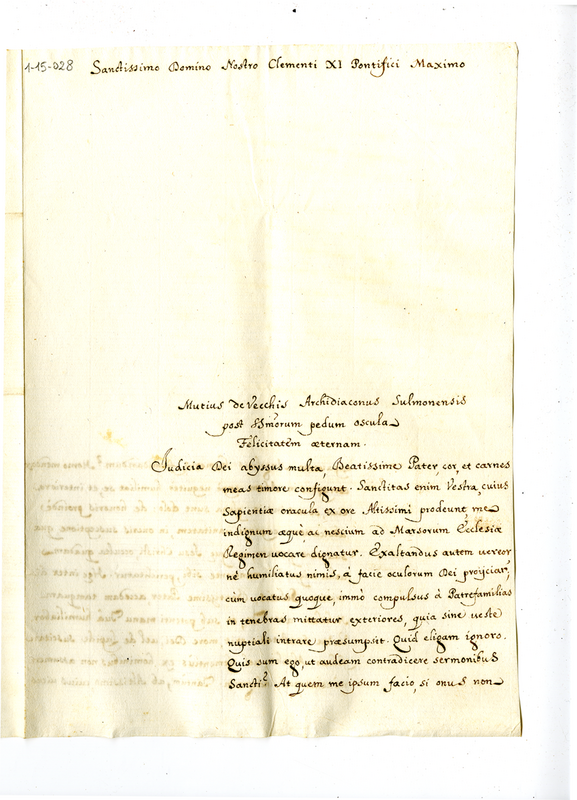 1-15-028
Sanctissimo Domino Nostro Clementi XI Pontifici Maximo
Mutius de Vecchis Archidiaconus Sulmonensis
post SSmorum pedum oscula
Felicitatem æternam.
Iudicia Dei abyssus multa, Beatissime Pater, cor, et carnes
meas timore configunt. Sanctitas enim Vestra, cuius
Sapientiæ oracula ex ore Altissimi prodeunt, me
indignum æquè ac nescium ad Marsorum Ecclesiæ
Regimen vocare dignatur. Exaltandus autem vereor
nè humiliatus nimis, à facie oculorum Dei proijciar,
cùm vocatus quoque, immò compulsus à Patrefamilias
in tenebras mittatur exteriores, quia sine veste
nuptiali intrare præsumpsit. Quid eligam ignoro.
Quis sum ego, ut audeam contradicere sermonibus
Sancti? At quem me ipsum facio, si onus non